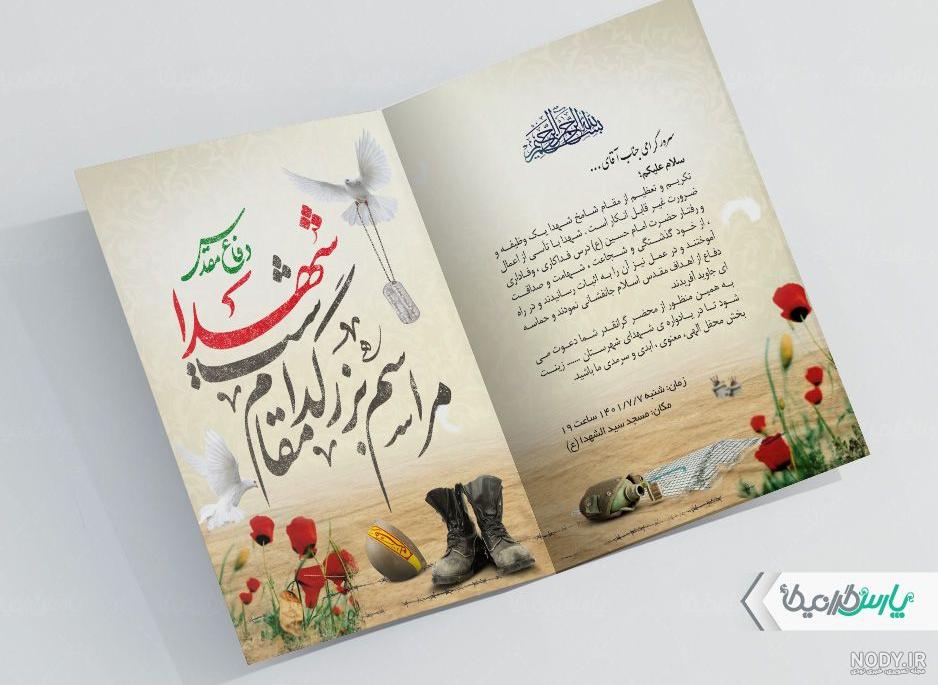 دفاع مقدس
مراسم بزرگداشت
مقام شهدا
بسم الله الرحمن الرحیم
سرور گرامی جناب آقای ...
سلام علیکم؛
تکریم و تعظیم از مقام شامخ شهدا یک وظیفه و
ضرورت غیر قابل انکار است. شهدا با تأسی از اعمال
و رفتار حضرت امام حسین (ع) درس فداکاری ، وفاداری
، از خود گذشتگی و شجاعت ، شهامت و صداقت
آموختند و در عمل نیز آن را به اثبات رسانیدند و در راه
دفاع از اهداف مقدس اسلام جانفشانی نمودند و حماسه
ای جاوید آفریدند
به همین منظور از محضر گرانقدر شما دعوت می
شود تا در یادواره ی شهدای شهرستان ...... زینت
بخش محفل الهی، معنوی ، ابدی و سرمدی ما باشید.
زمان: شنبه ۱۴۰۱/۷/۷ ساعت ۱۹
مکان: مسجد سید الشهدا (ع)
پارس گرافیک
NODY.IR